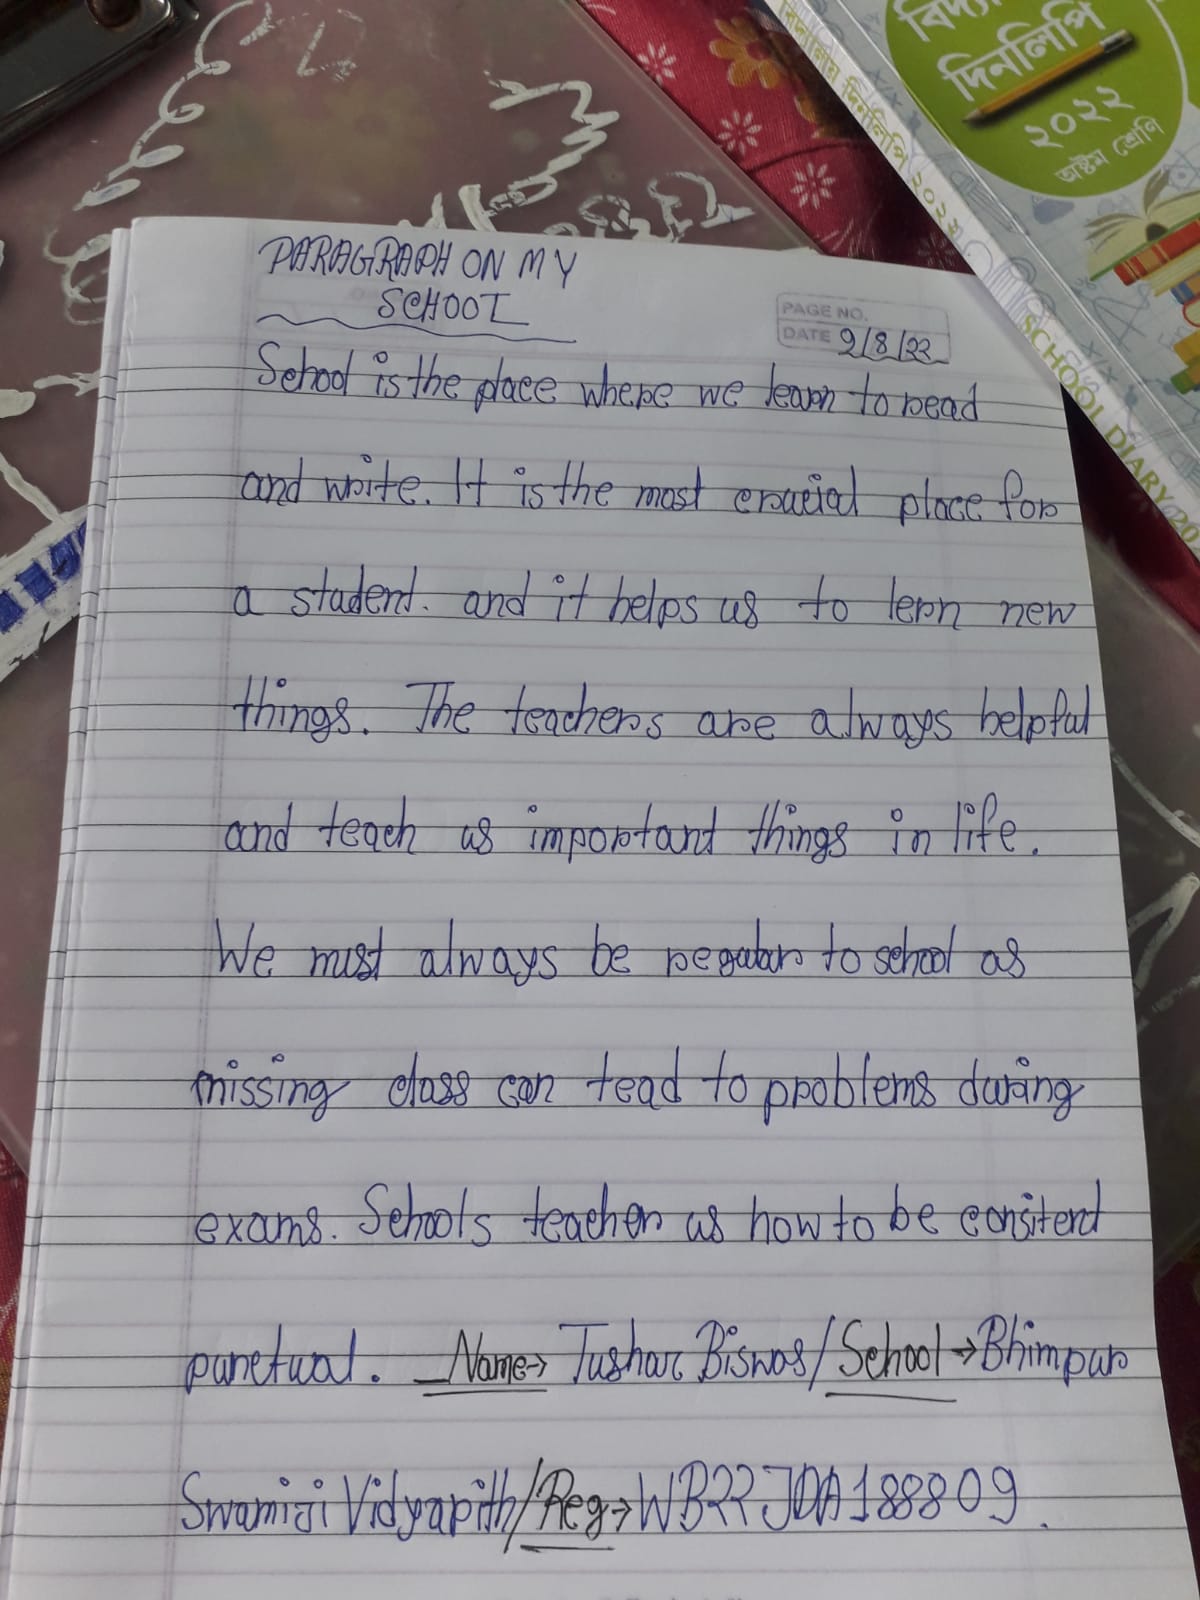 বিদ্যা
দিনলিপি
২০২২
অষ্টম শ্রেণি
বিদ্যালয় দিনলিপি ২০২২
SCHOOL DIARY 20
PARAGRAPH ON MY
SCHOOL
PAGE NO.
DATE 9/8/22
School is the place where we learn to read
and write. It is the most crucial place for
a student. and it helps us to lern new
things. The teachers are always helpful
and teach us important things in life.
We must always be regular to school as
missing class can tead to problems during
exams. Schools teacher us how to be consiterd
punctual. Name→ Tushar Biswas/School→Bhimpur
Swamiji Vidyapith/Reg→WB22JDA188809.